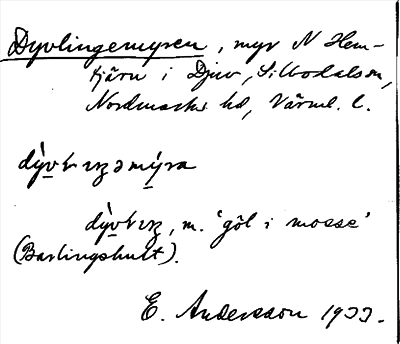 Dyvlingemyren, myr N Hem-
tjärn i Djuv, Silbodalssn,
Nordmarks hd, Värml. l.
dỳvlıŋəmýra
dỳvlıŋ, m. 'göl i mosse'
(Barlingshult).
E. Andersson 1933.